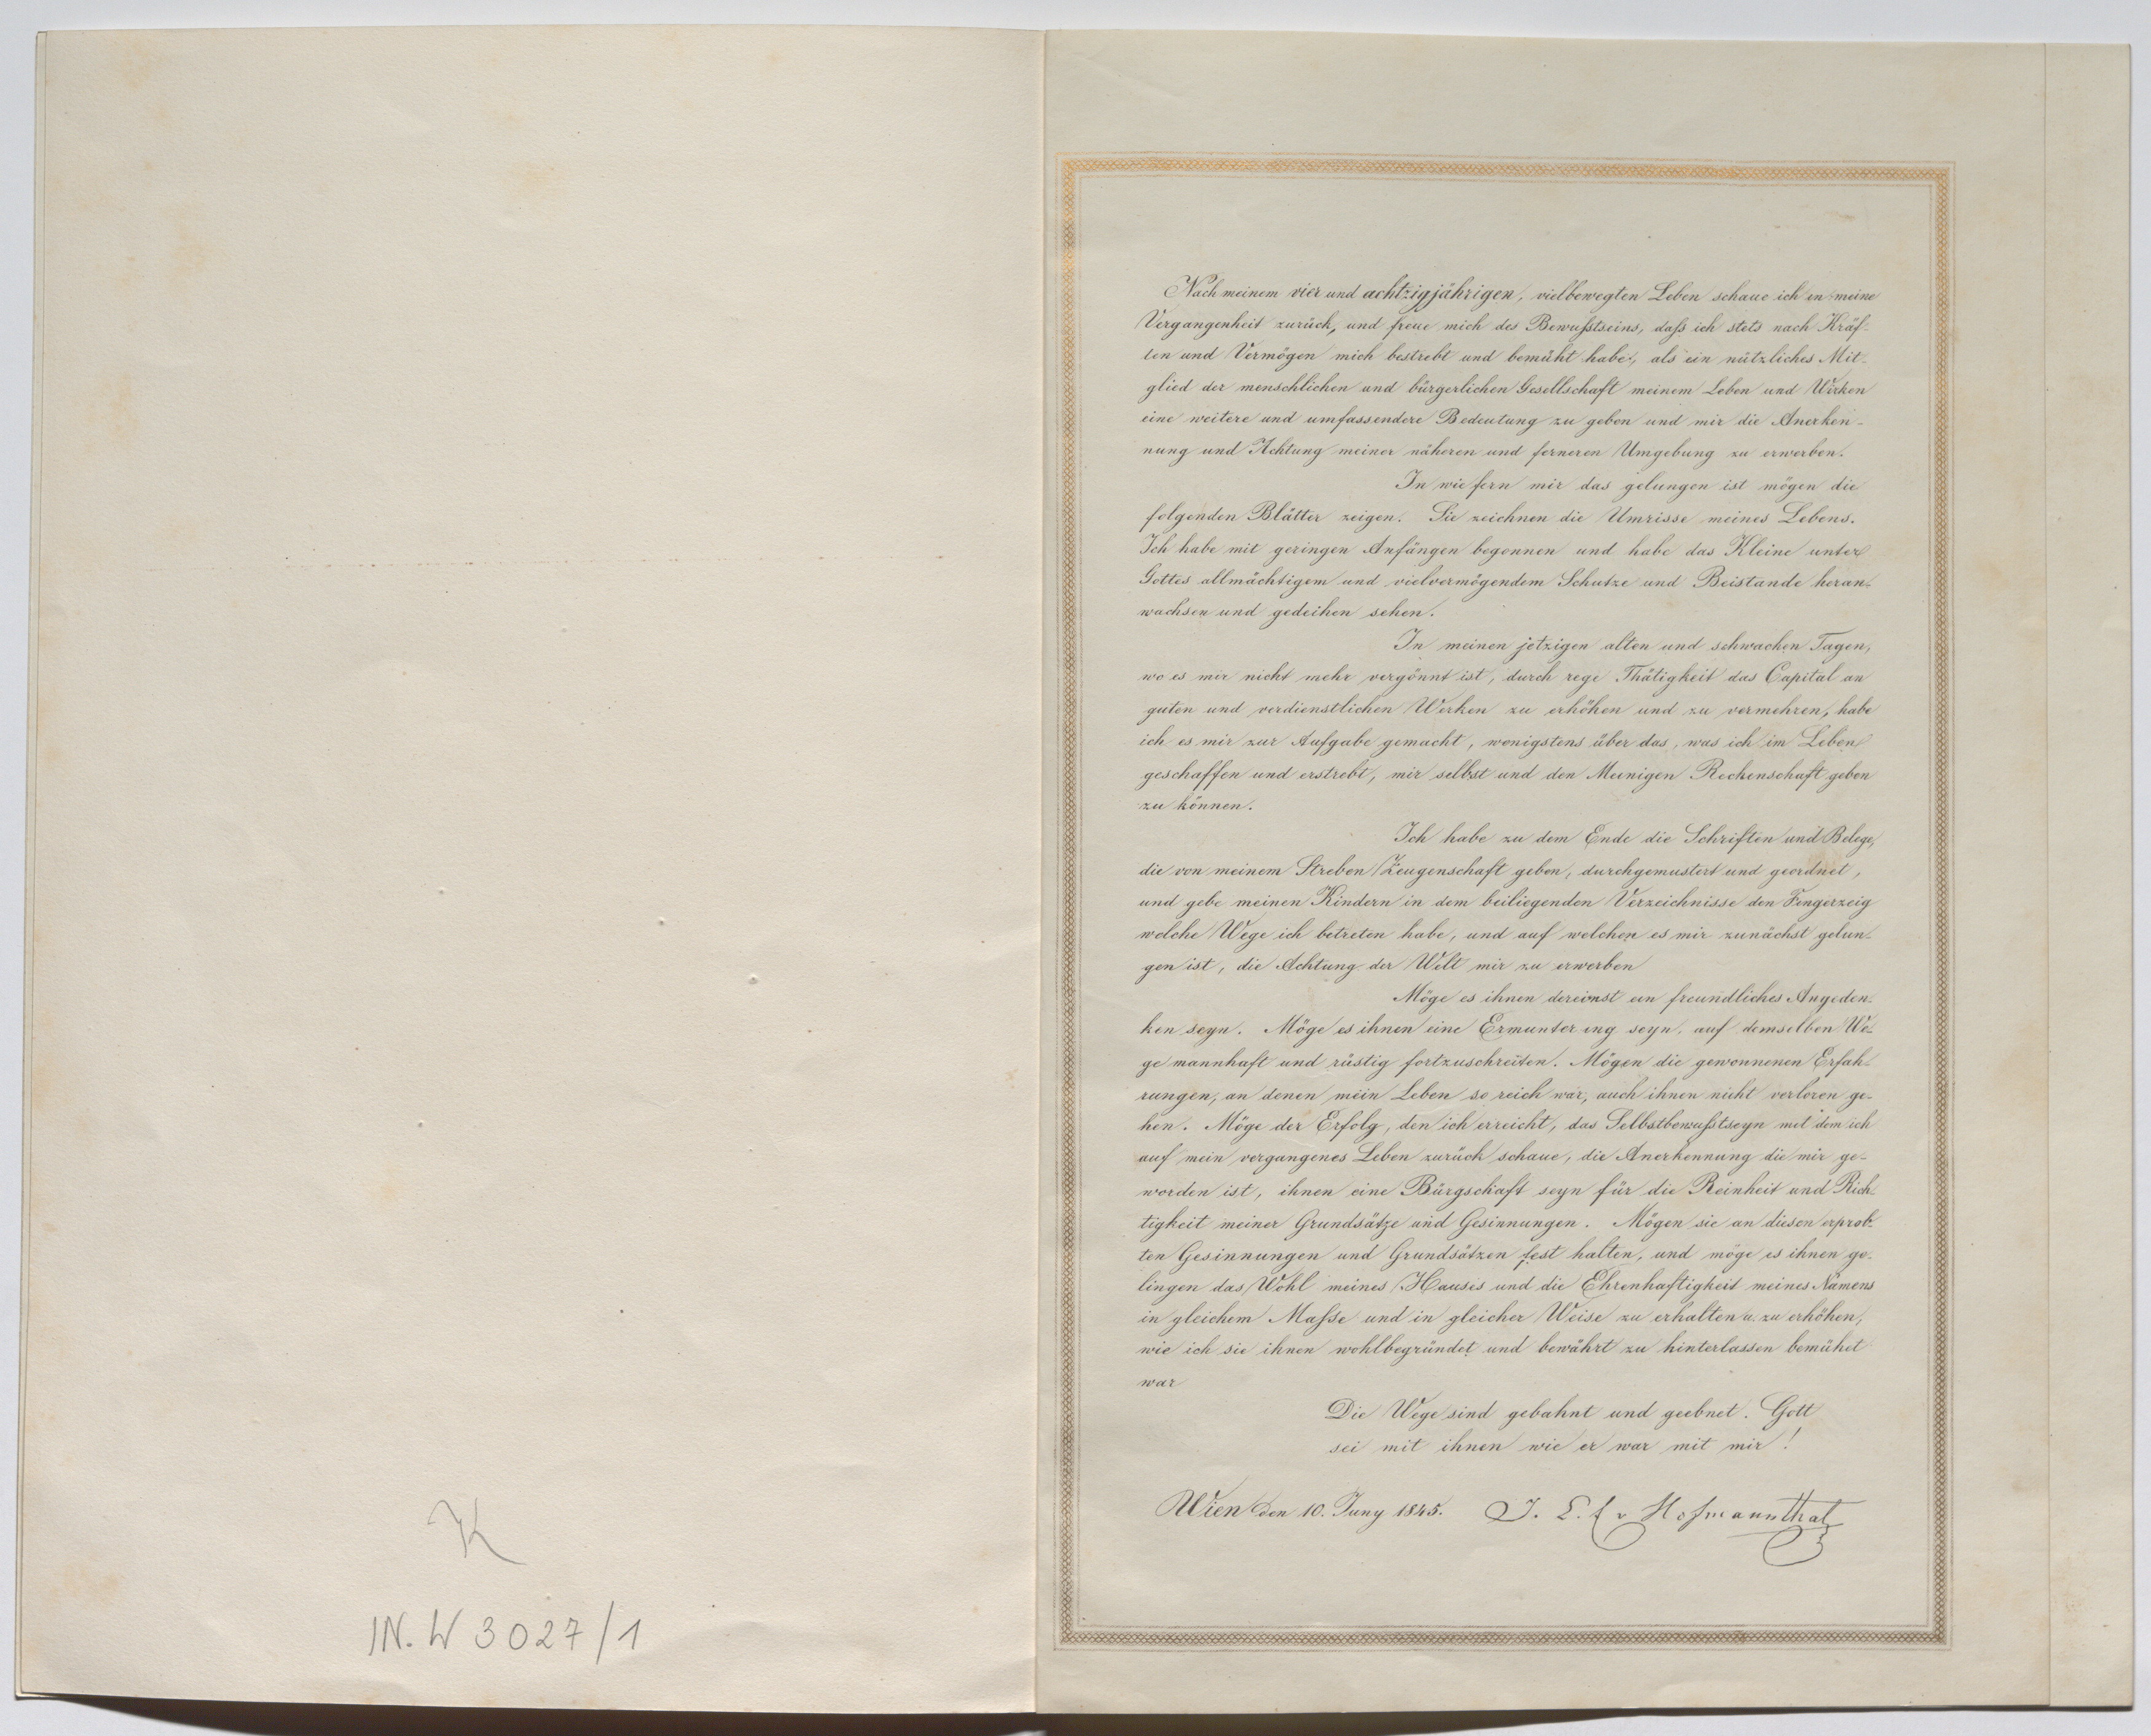 K
IN. W 3027/1
Nach meinem vier und achtzigjährigen, vielbewegten Leben schaue ich in meine
Vergangenheit zurück, und freue mich des Bewußtseins, daß ich stets nach Kräf-
ten und Vermögen mich bestrebt und bemüht habe, als ein nützliches Mit-
glied der menschlichen und bürgerlichen Gesellschaft meinem Leben und Wirken
eine weitere und umfassendere Bedeutung zu geben und mir die Anerken-
nung und Achtung meiner näheren und ferneren Umgebung zu erwerben.
In wie fern mir das gelungen ist mögen die
folgenden Blätter zeigen. Sie zeichnen die Umrisse meines Lebens.
Ich habe mit geringen Anfängen begonnen und habe das Kleine unter
Gottes allmächtigem und vielvermögendem Schutze und Beistande heran-
wachsen und gedeihen sehen.
In meinen jetzigen alten und schwachen Tagen,
wo es mir nicht mehr vergönnt ist, durch rege Thätigkeit das Capital an
guten und verdienstlichen Werken zu erhöhen und zu vermehren, habe
ich es mir zur Aufgabe gemacht, wenigstens über das, was ich im Leben
geschaffen und erstrebt, mir selbst und den Meinigen Rechenschaft geben
zu können.
Ich habe zu dem Ende die Schriften und Belege,
die von meinem Streben Zeugenschaft geben, durchgemustert und geordnet,
und gebe meinen Kindern in dem beiliegenden Verzeichnisse den Fingerzeig
welche Wege ich betreten habe, und auf welchen es mir zunächst gelun-
gen ist, die Achtung der Welt mir zu erwerben
Möge es ihnen dereinst ein freundliches Angeden-
ken seyn. Möge es ihnen eine Ermunterung seyn, auf demselben We-
ge mannhaft und rüstig fortzuschreiten. Mögen die gewonnenen Erfah-
rungen, an denen mein Leben so reich war, auch ihnen nicht verloren ge-
hen. Möge der Erfolg, den ich erreicht, das Selbstbewußtseyn mit dem ich
auf mein vergangenes Leben zurück schaue, die Anerkennung die mir ge-
worden ist, ihnen eine Bürgschaft seyn für die Reinheit und Rich-
tigkeit meiner Grundsätze und Gesinnungen. Mögen sie an diesen erprob-
ten Gesinnungen und Grundsätzen fest halten, und möge es ihnen ge-
lingen das Wohl meines Hauses und die Ehrenhaftigkeit meines Namens
in gleichem Maße und in gleicher Weise zu erhalten u. zu erhöhen,
wie ich sie ihnen wohlbegründet und bewährt zu hinterlassen bemühet
war
Die Wege sind gebahnt und geebnet. Gott
sei mit ihnen wie er war mit mir!
Wien den 10. Juny 1845. I. L. E. v Hofmannsthal